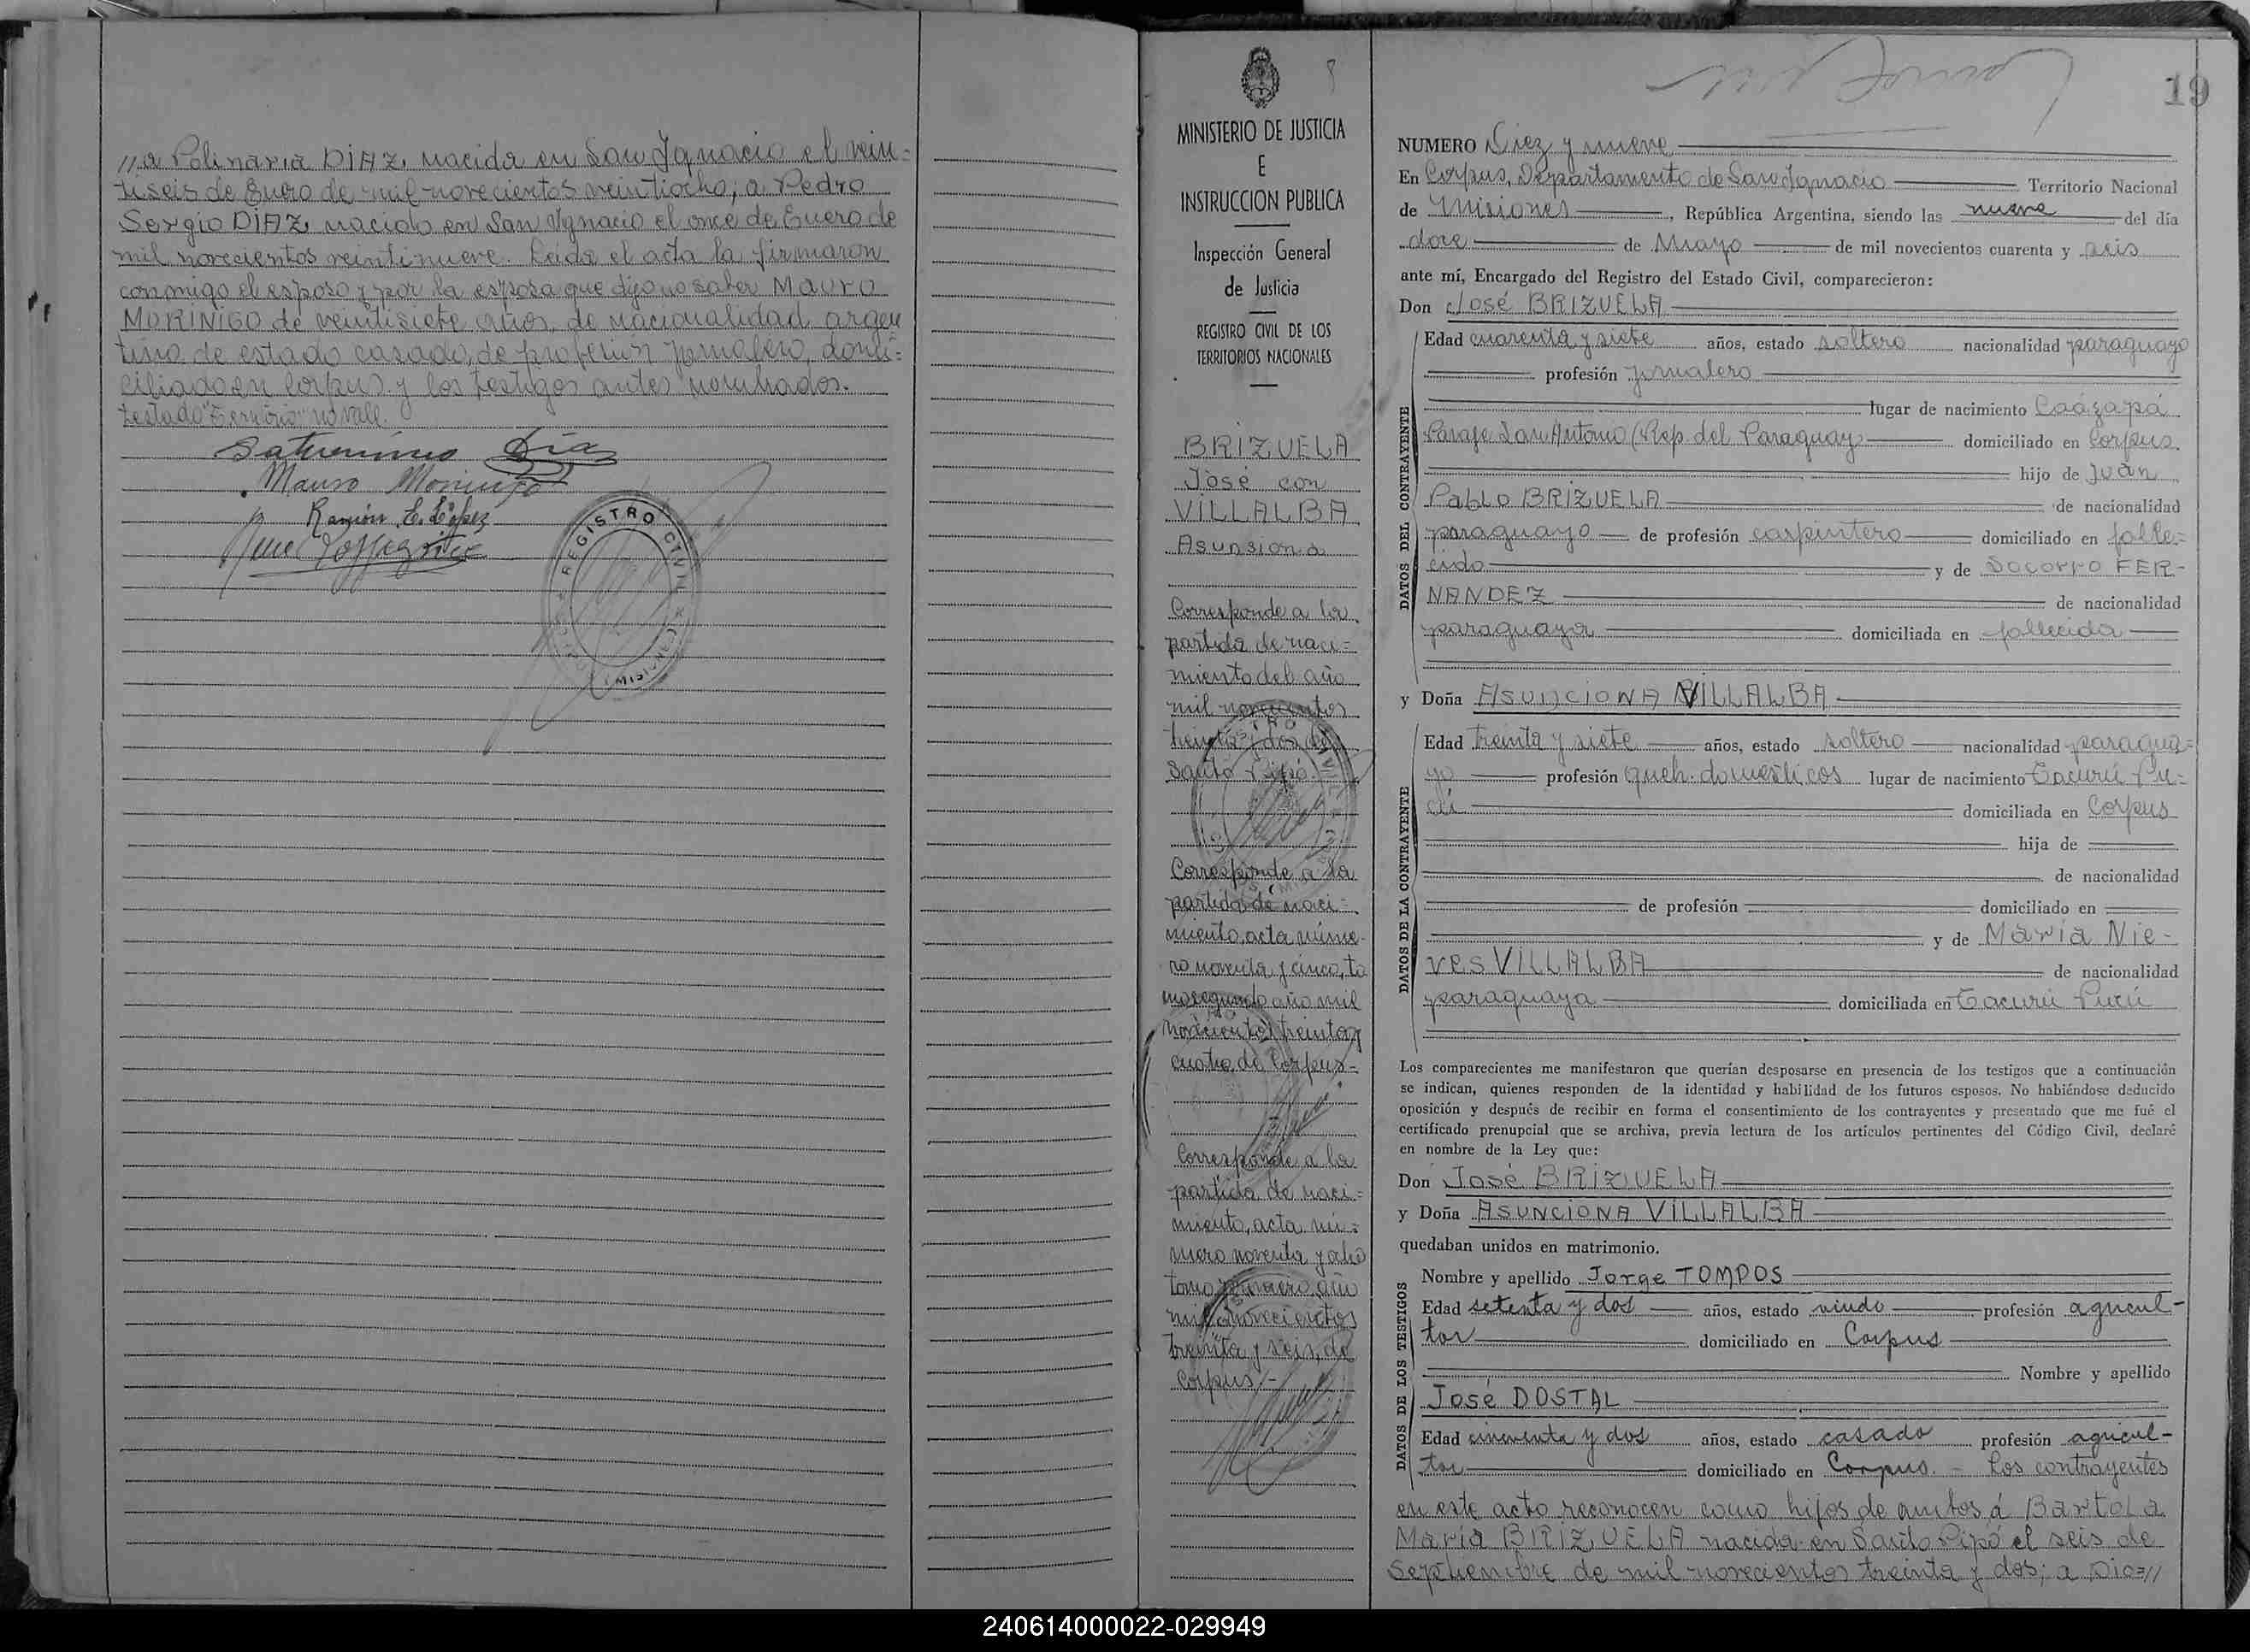 //a Polinaria DIAZ, nacida en San Ignacio el vein-
tiseis de Enero de mil novecientos veintiocho; a Pedro
Sergio DIAZ, nacido en San Ignacio el once de Enero de
mil novecientos veintinueve. Leida el acta la firmaron
conmigo el esposo y por la esposa que dijo no saber Mauro
MORINIGO de veintisiete años, de nacionalidad argen
tino de estado casado, de profesion jornalero, domi-
ciliado en Corpus y los testigos antes nombrados.
testado no vale.
Saturnino Diaz
Mauro Morinigo
Ramón E. López
REGISTRO CIVIL
MISIONES
MINISTERIO DE JUSTICIA
E
INSTRUCCION PUBLICA
Inspección General
de Justicia
REGISTRO CIVIL DE LOS
TERRITORIOS NACIONALES
BRIZUELA
José con
VILLALBA
Asunsiona
Corresponde a la
partida de naci-
miento del año
mil novecientos
treinta y dos de
Santo Pipó.
Corresponde a la
partida de naci-
miento, acta núme-
ro noventa y cinco, to
mo segundo año mil
novecientos treinta y
cuatro, de Corpus-
Corresponde a la
partida de naci-
miento, acta nú-
mero noventa y ocho
tomo primero, año
mil novecientos
treinta y seis, de
Corpus.-
19
NUMERO Diez y nueve
En Corpus, Departamento de San Ignacio Territorio Nacional
de Misiones, República Argentina, siendo las nueve del día
doce de Mayo de mil novecientos cuarenta y seis
ante mí, Encargado del Registro del Estado Civil, comparecieron:
Don José BRIZUELA
DATOS DEL CONTRAYENTE
Edad cuarenta y siete años, estado soltero nacionalidad paraguayo
profesión jornalero
lugar de nacimiento Caázapá
Paraje San Antonio (Rep. del Paraguay) domiciliado en Corpus
hijo de Juan
Pablo BRIZUELA de nacionalidad
paraguayo de profesión carpintero domiciliado en falle-
cido y de Socorro FER-
NANDEZ de nacionalidad
paraguaya domiciliada en fallecida
y Doña ASUNCIONA VILLALBA
DATOS DE LA CONTRAYENTE
Edad treinta y siete años, estado soltero nacionalidad paragua-
ya profesión queh. domesticos lugar de nacimiento Tacurú Pu-
cú domiciliada en Corpus
hija de
de nacionalidad
de profesión domiciliado en
y de María Nie-
ves VILLALBA de nacionalidad
paraguaya domiciliada en Tacurú Pucú
Los comparecientes me manifestaron que querían desposarse en presencia de los testigos que a continuación
se indican, quienes responden de la identidad y habilidad de los futuros esposos. No habiéndose deducido
oposición y después de recibir en forma el consentimiento de los contrayentes y presentado que me fué el
certificado prenupcial que se archiva, previa lectura de los artículos pertinentes del Código Civil, declaré
en nombre de la Ley que:
Don José BRIZUELA
y Doña ASUNCIONA VILLALBA
quedaban unidos en matrimonio.
DATOS DE LOS TESTIGOS
Nombre y apellido Jorge TOMPOS
Edad setenta y dos años, estado viudo profesión agricul-
tor domiciliado en Corpus
Nombre y apellido
José DOSTAL
Edad cincuenta y dos años, estado casado profesión agricul-
tor domiciliado en Corpus.- Los contrayentes
en este acto reconocen como hijos de ambos á Bartola
María BRIZUELA nacida en Santo Pipó el seis de
Septiembre de mil novecientos treinta y dos; a Dio=//
240614000022-029949